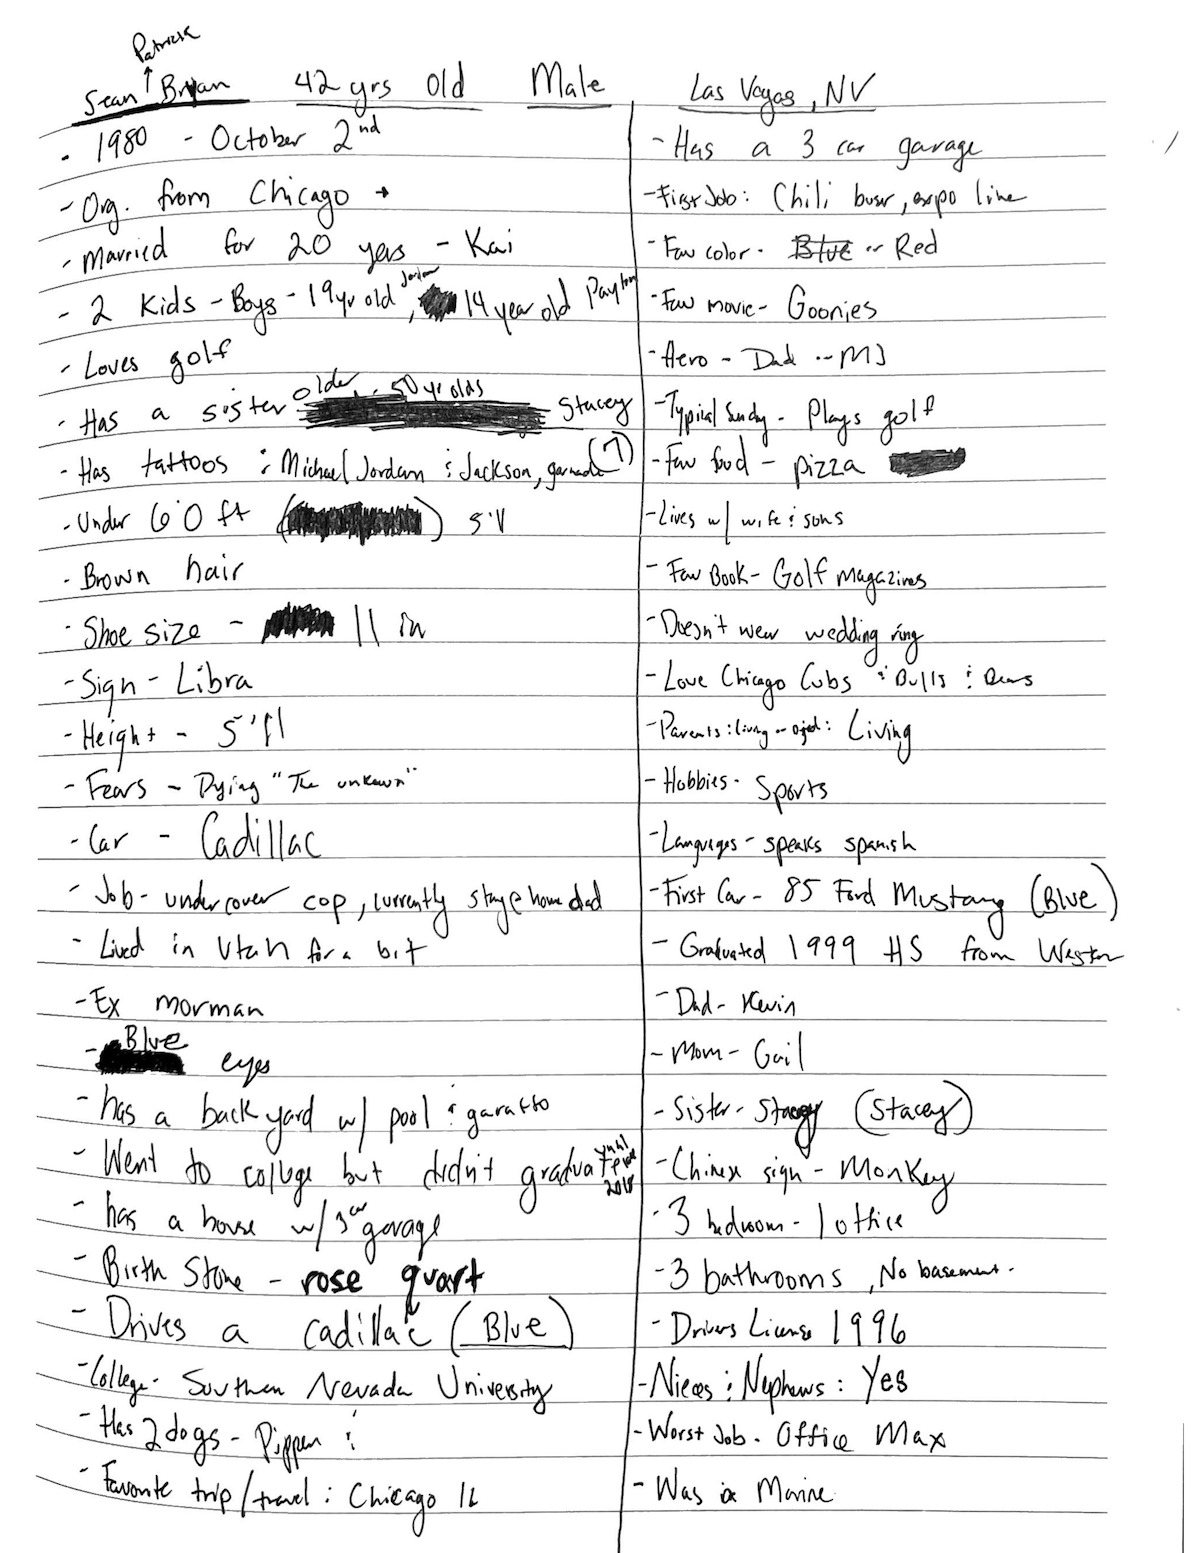 Patrick
Sean Bryan 42 yrs old Male Las Vegas, NV
- 1980 - October 2nd
- Org. from Chicago
- Married for 20 yers - Kai
- 2 Kids - Boys - 19 yr old Jordan, 14 year old Payton
- Loves golf
- Has a sister older 50 yr olds Stacey
- Has tattoos : Michael Jordan : Jackson, (7)
- Under 6'0 ft ( ) 5'11
- Brown hair
- Shoe size - 11 in
- Sign - Libra
- Height - 5'11
- Fears - Dying "The unknown"
- Car - Cadillac
- Job - undercover cop, currently stay@home dad
- Lived in Utah for a bit
- Ex morman
- Blue eyes
- has a back yard w/ pool :
- Went to college but didn't graduate 2018
- has a house w/ 3 car garage
- Birth Stone - rose quart
- Drives a cadillac (Blue)
- College - Southern Nevada University
- Has 2 dogs - Pippen :
- Favorite trip/travel : Chicago IL
- Has a 3 car garage
- First Job : Chili busr, expo line
- Fav color - Blue or Red
- Fav movie - Goonies
- Hero - Dad -- MJ
- Typical Sunday - Plays golf
- Fav food - pizza
- Lives w/ wife : sons
- Fav Book - Golf magazines
- Doesn't wear wedding ring
- Love Chicago Cubs : Bulls : Bears
- Parents : living or : Living
- Hobbies - Sports
- Languages - speaks spanish
- First Car - 85 Ford Mustang (Blue)
- Graduated 1999 HS from Western
- Dad - Kevin
- Mom - Gail
- Sister - Stacey (Stacey)
- Chinese sign - Monkey
- 3 bedroom - 1 office
- 3 bathrooms, No basement.
- Drivers License 1996
- Nieces : Nephews : Yes
- Worst Job - Office Max
- Was in Marine